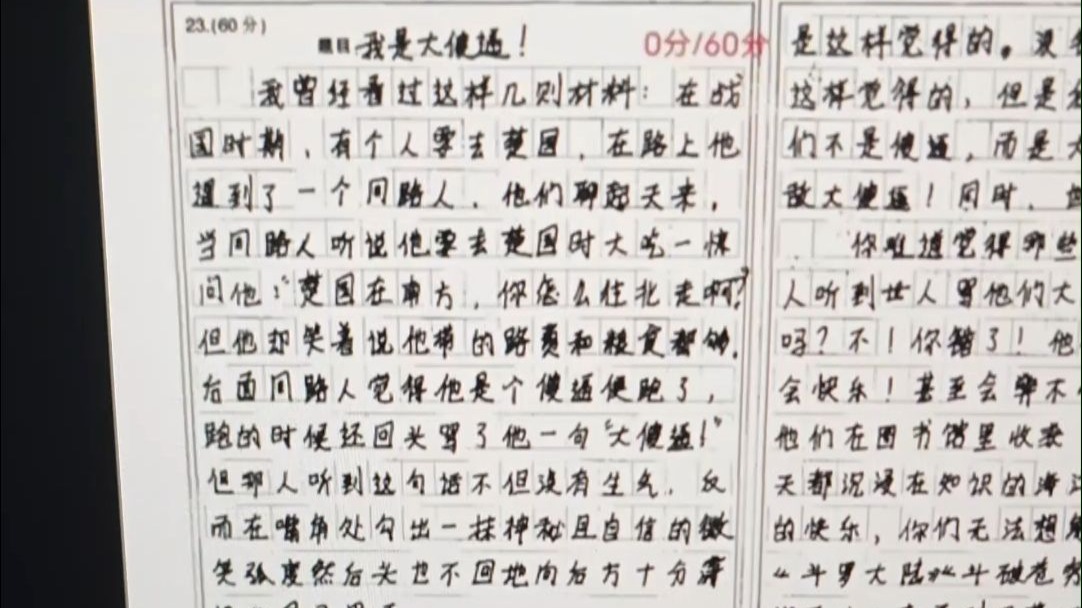 23.(60分)
题目 我是大傻逼！
0分/60分
我曾经看过这样几则材料：在战
国时期，有个人要去楚国，在路上他
遇到了一个问路人，他们聊起天来，
当问路人听说他要去楚国时大吃一惊
问他：“楚国在南方，你怎么往北走啊？
但他却笑着说他带的路费和粮食都够。
后面问路人觉得他是个傻逼便跑了，
跑的时候还回头骂了他一句“大傻逼！”
但那人听到这句话不但没有生气，反
而在嘴角处勾出一抹神秘且自信的微
笑弧度然后头也不回地向后方十分
是这样觉得的。没
这样觉得的，但是
们不是傻逼，而是
敌大傻逼！同时，
你难道觉得那些
人听到世人骂他们大
吗？不！你错了！他
会快乐！甚至会 不
他们在图书馆里收
天都沉浸在知识的海
的快乐，你们无法想
《斗罗大陆》《斗破苍穹